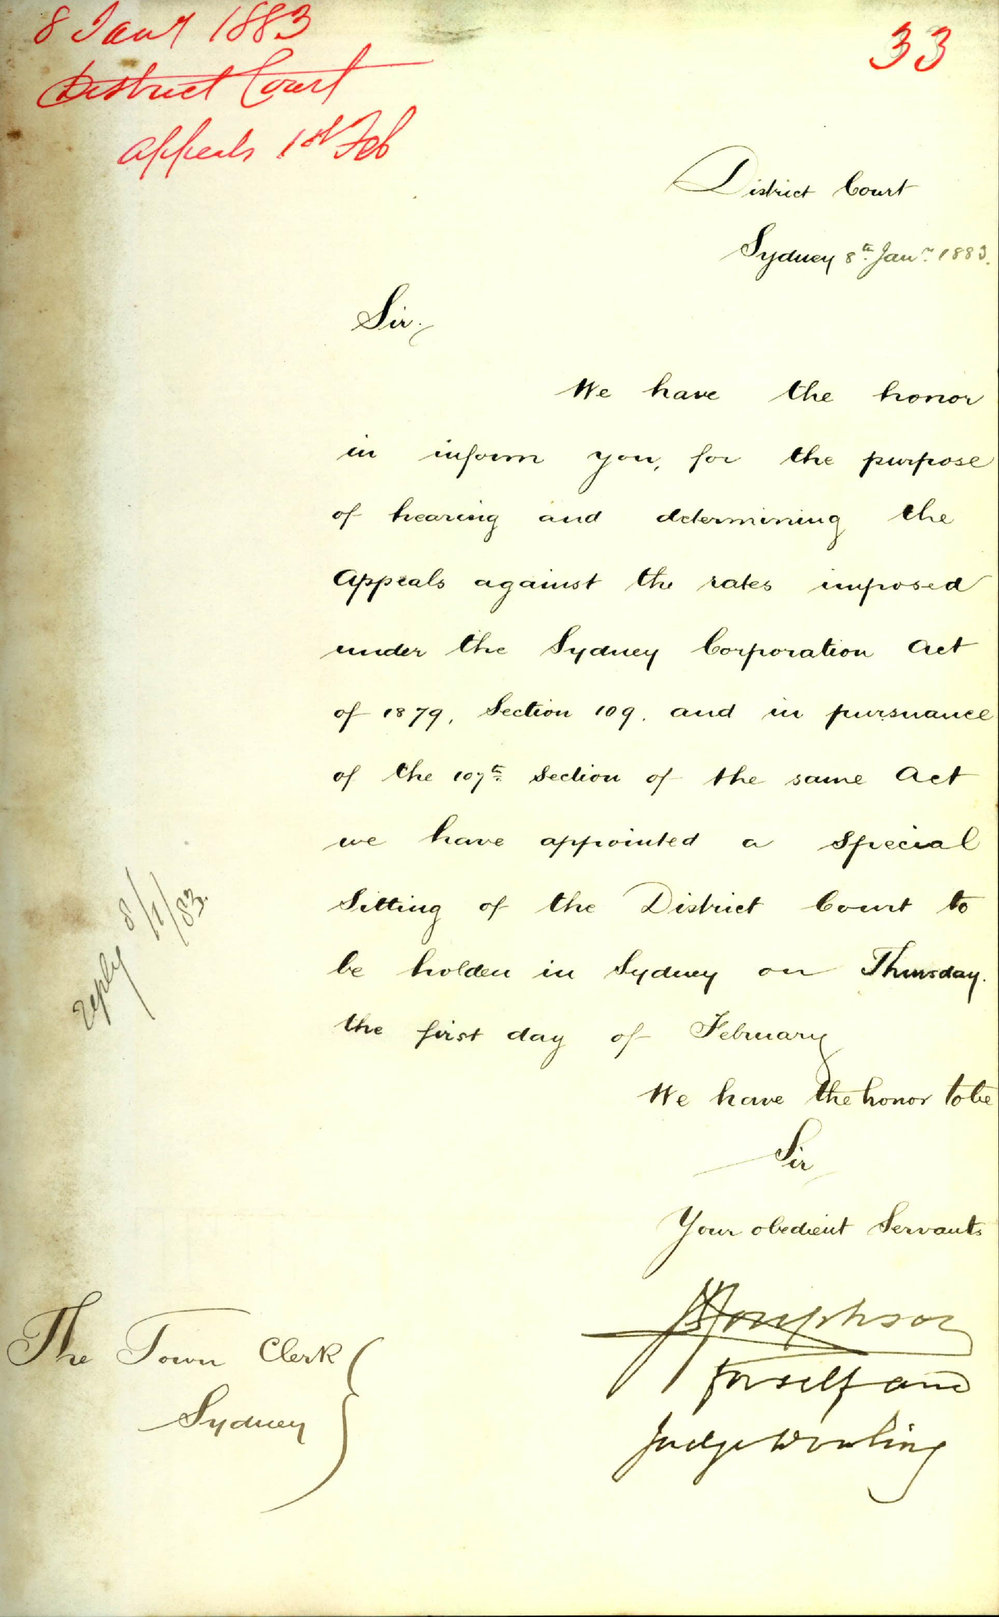 8 Jany 1883
District Court
Appeals 1st Feb
33
District Court
Sydney 8th Jany 1883.
Sir,
We have the honor
in inform you, for the purpose
of hearing and determining the
Appeals against the rates imposed
under the Sydney Corporation Act
of 1879, Section 109. and in pursuance
of the 107th Section of the same Act
we have appointed a Special
Sitting of the District Court to
be holden in Sydney on Thursday.
the first day of February
We have the honor to be
Sir
Your obedient Servants
Josephson
for self and
Judge Dowling
The Town Clerk
Sydney
reply 8/1/83.